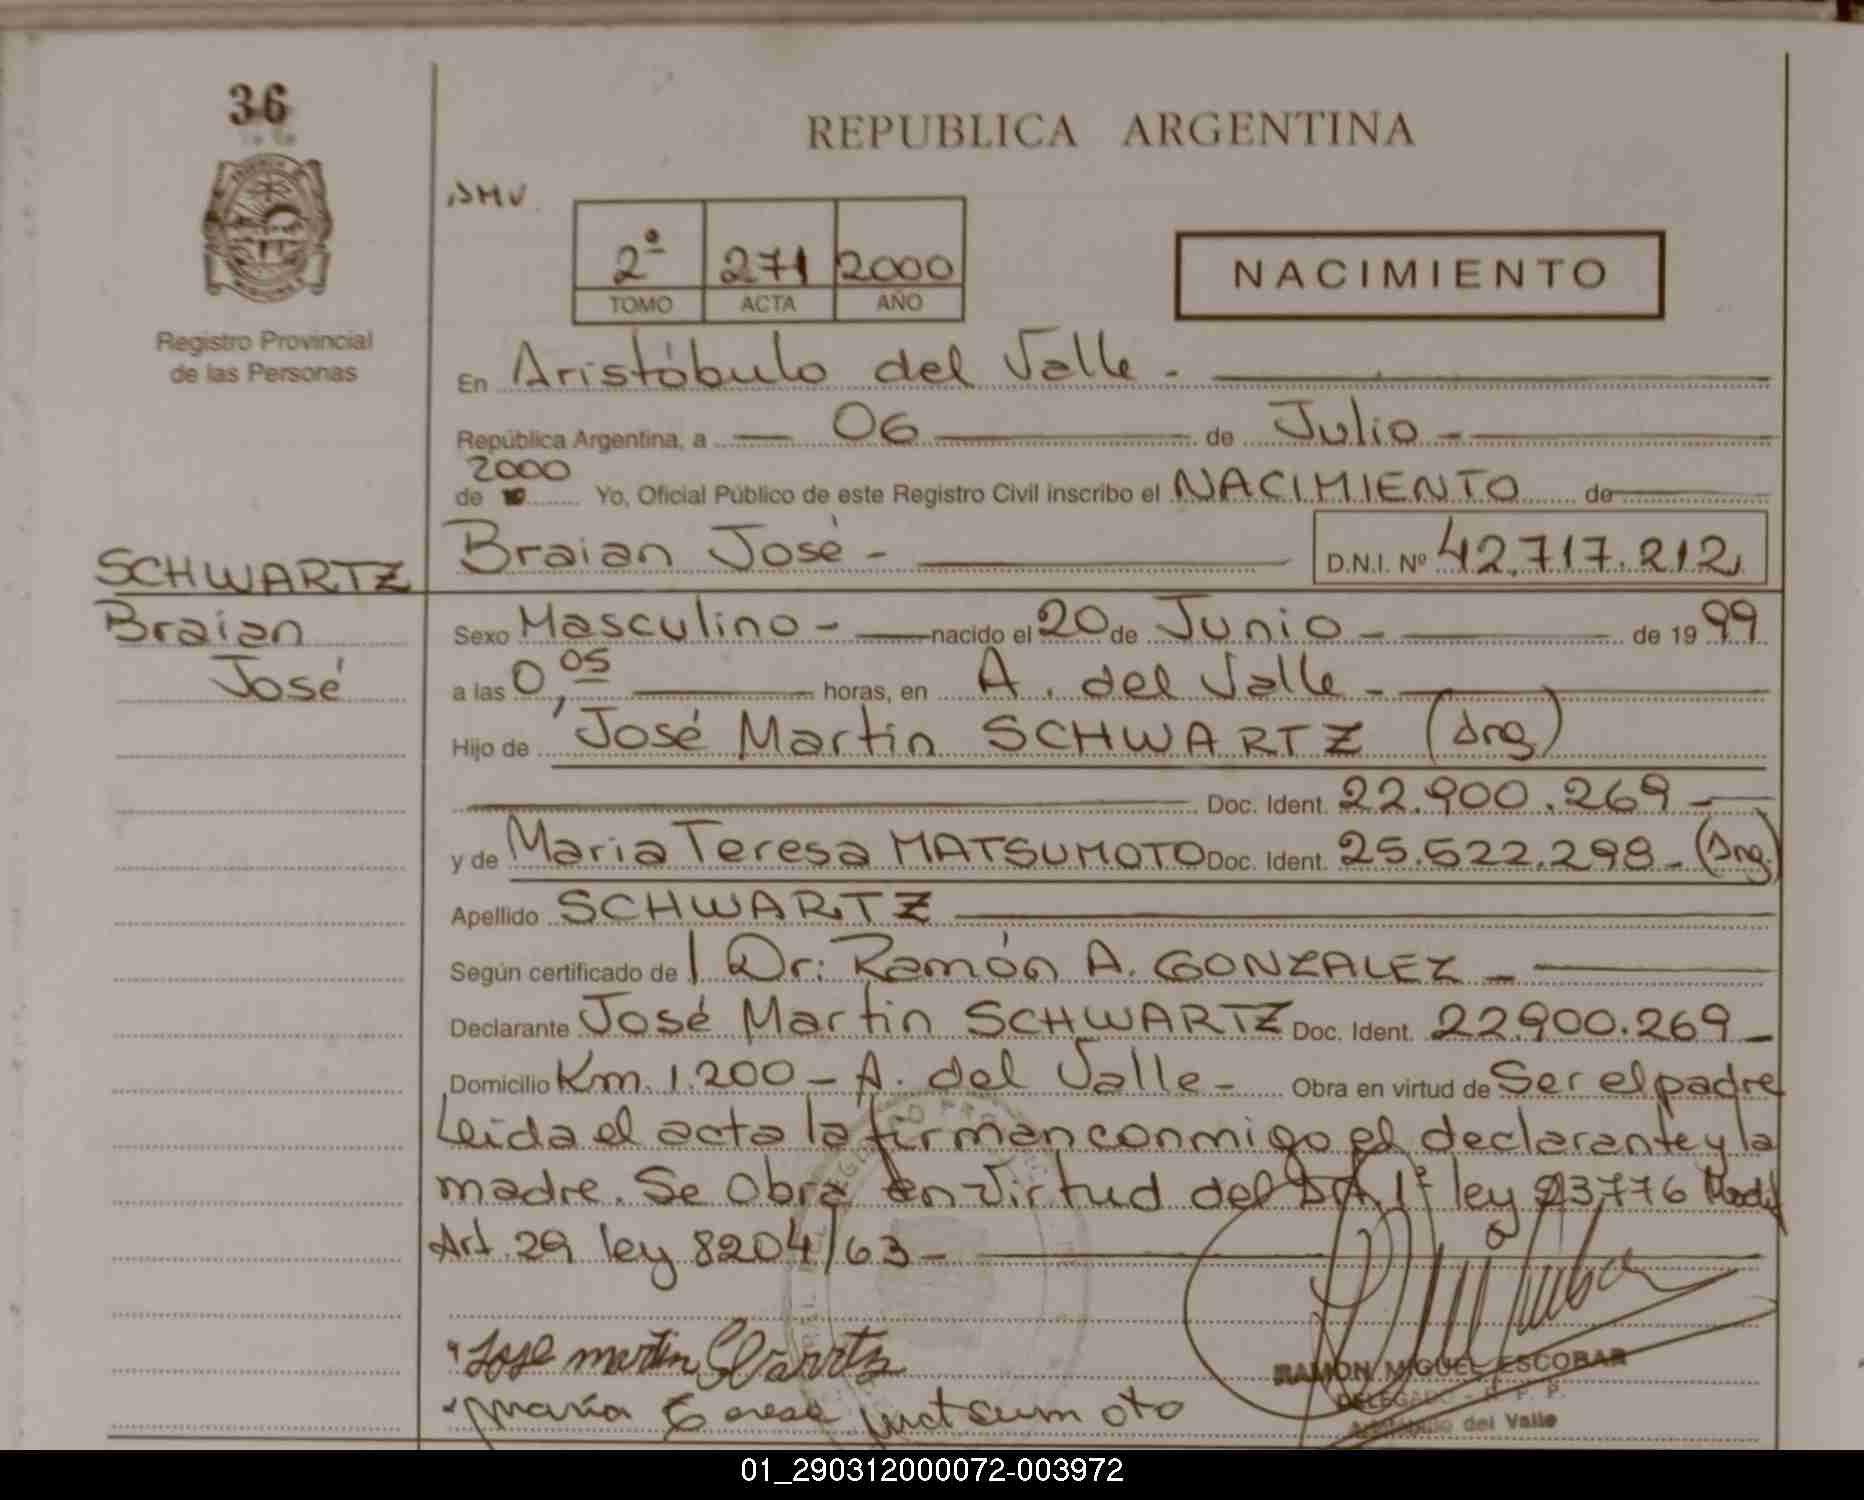 36
REPUBLICA ARGENTINA
2º 271 2000
TOMO ACTA AÑO
NACIMIENTO
Registro Provincial
de las Personas
En Aristóbulo del Valle -
República Argentina, a 06 de Julio -
2000
de Yo, Oficial Público de este Registro Civil inscribo el NACIMIENTO de
Braian José - D.N.I. Nº 42.717.212
SCHWARTZ
Braian
José
Sexo Masculino - nacido el 20 de Junio - de 19 99
a las 0,05 horas, en A. del Valle -
Hijo de José Martin SCHWARTZ (Arg)
Doc. Ident. 22.900.269 -
y de Maria Teresa MATSUMOTO Doc. Ident. 25.522.298 - (Arg.)
Apellido SCHWARTZ
Según certificado de Dr: Ramón A. GONZALEZ -
Declarante José Martin SCHWARTZ Doc. Ident. 22.900.269 -
Domicilio Km. 1.200 - A. del Valle - Obra en virtud de Ser el padre
Leida el acta la firman conmigo el declarante y la
madre. Se Obra en virtud del 1º ley 23776 Modif
Art. 29 ley 8204/63 -
Jose martin
maria matsumoto
RAMON MIGUEL ESCOBAR
del Valle
01_290312000072-003972